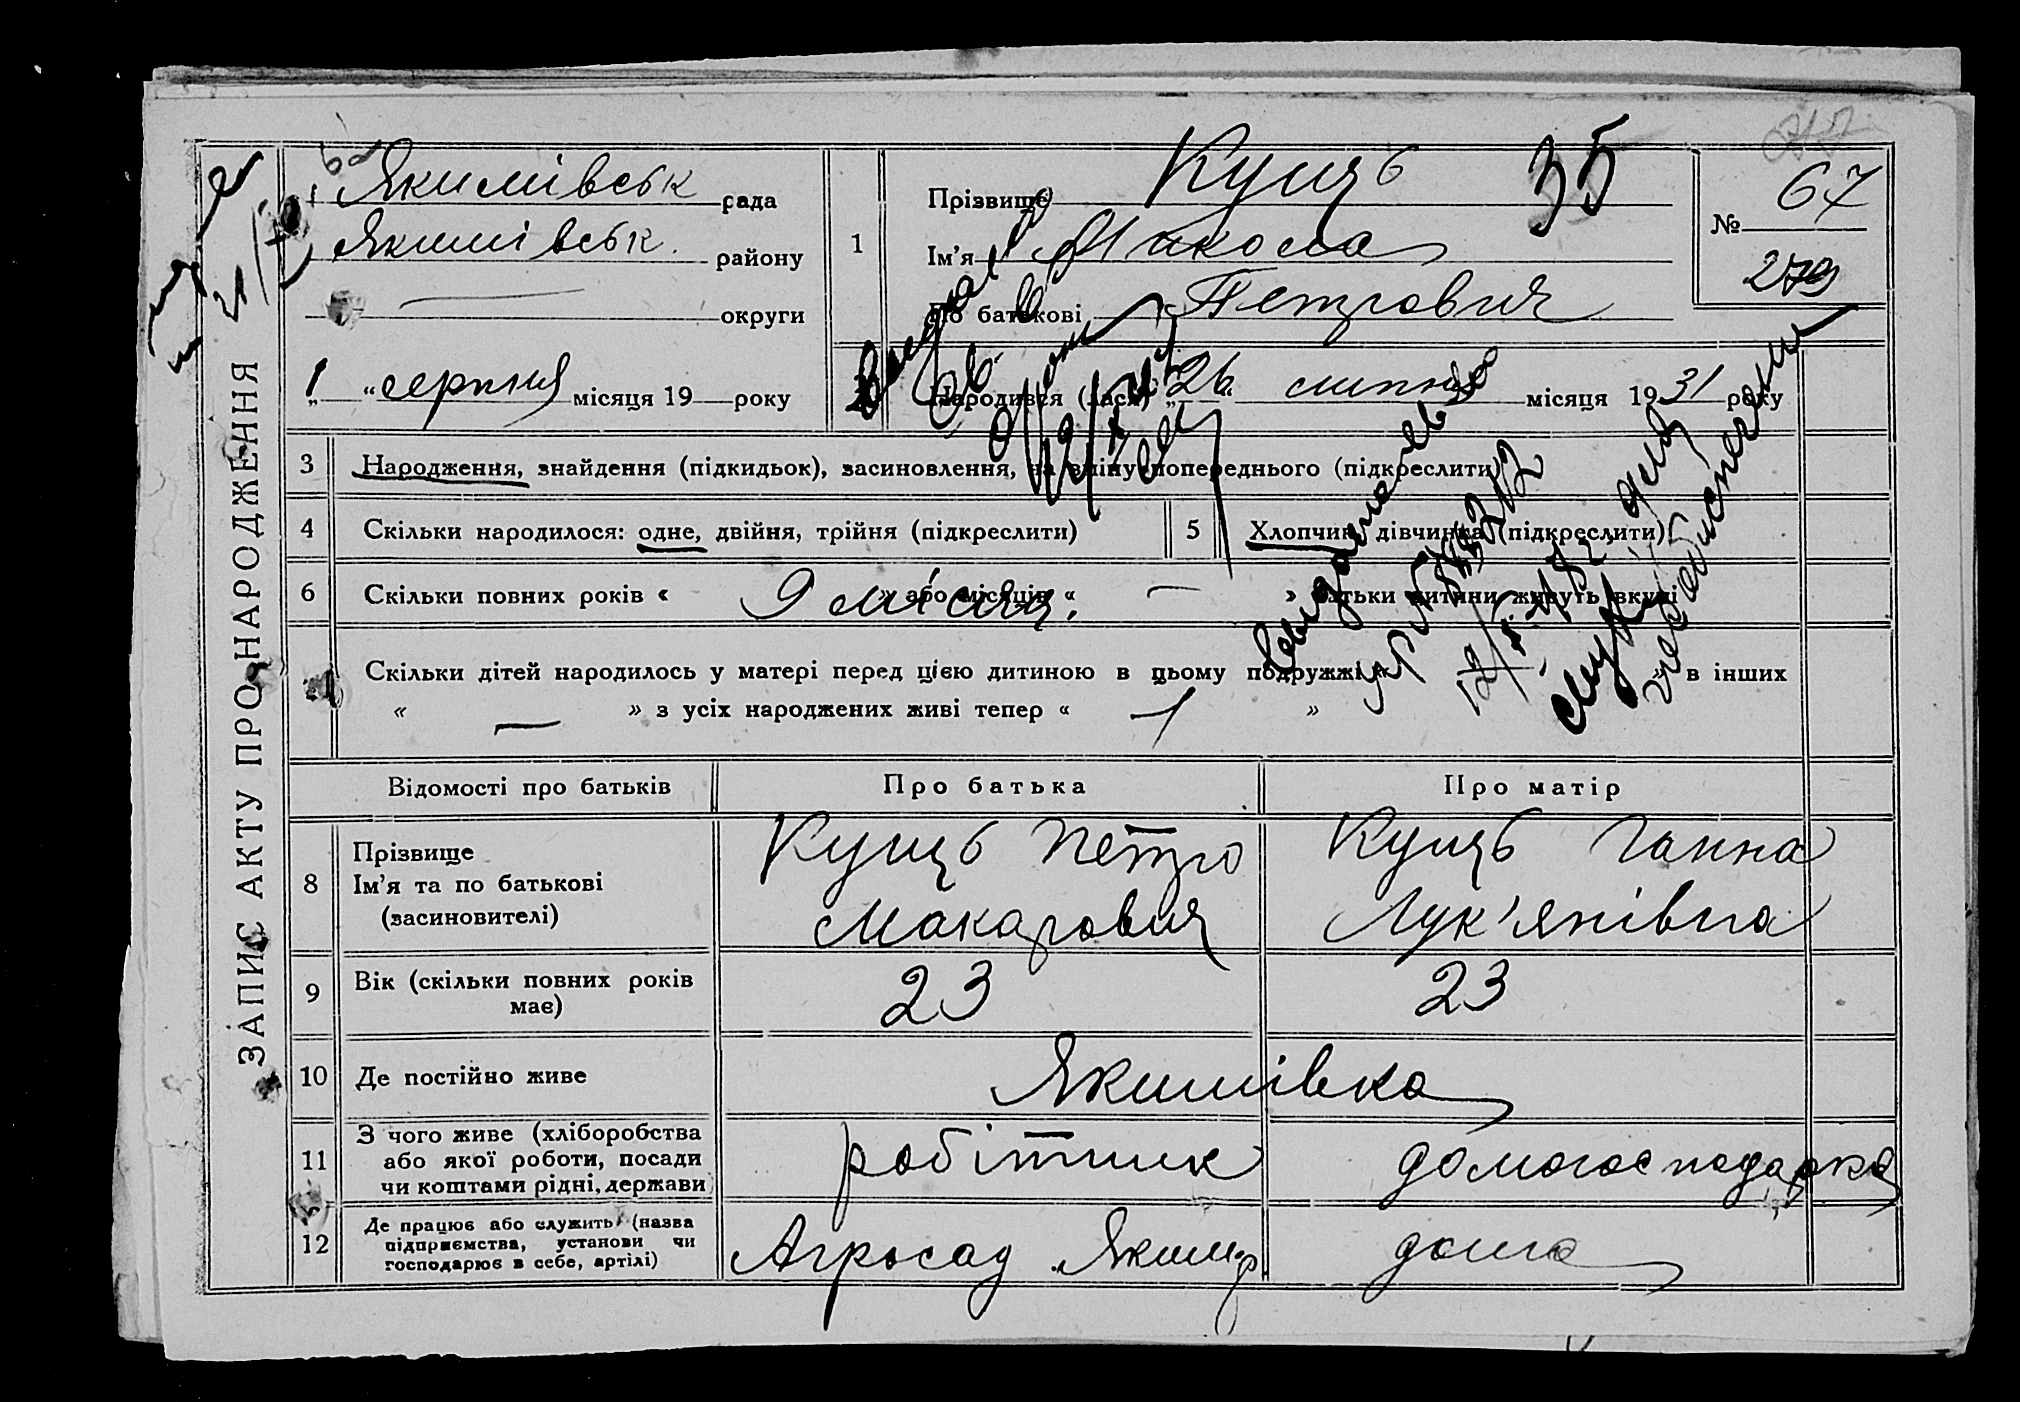 ЗАПИС АКТУ ПРО НАРОДЖЕННЯ
Якимівськ рада
Якимівськ районy
округи
„1“ серпня місяця 19 року
1
Прізвище Куць 35
Ім’я Микола
По батькові Петрович
№ 67
279
Народився (лася) „26“ липня місяця 1931 року
3 Народження, знайдення (підкидьок), засиновлення, на зміну попереднього (підкреслити)
4 Скільки народилося: одне, двійня, трійня (підкреслити)
5 Хлопчик, дівчинка (підкреслити)
6 Скільки повних років « 9 місяц. або місяців « — » батьки дитини живуть вкупі
Скільки дітей народилось у матері перед цією дитиною в цьому подружжі « » в інших
« — » з усіх народжених живі тепер « 1 »
Відомості про батьків Про батька Про матір
8 Прізвище
Ім’я та по батькові
(засиновителі)
Куць Петро
Макарович
Куць Ганна
Лук’янівна
9 Вік (скільки повних років
має)
23 23
10 Де постійно живе Якимівка
11 З чого живе (хліборобства
або якої роботи, посади
чи коштами рідні, держави
робітник домогосподарка
12 Де працює або служить (назва
підприємства, установи чи
господарює в себе, артілі)
Агросад Яким.р. дома